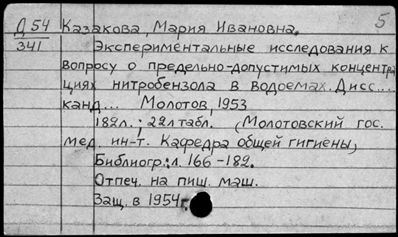 Д54 Казакова, Мария Ивановна. 5
341 Экспериментальные исследования к
вопросу о предельно-допустимых концентра
циях нитробензола в водоемах. Дисс....
канд... Молотов, 1953
182л.; 22л табл. (Молотовский гос.
мед. ин-т. Кафедра общей гигиены)
Библиогр: л. 166-182.
Отпеч. на пиш. маш.
Защ. в 1954г.